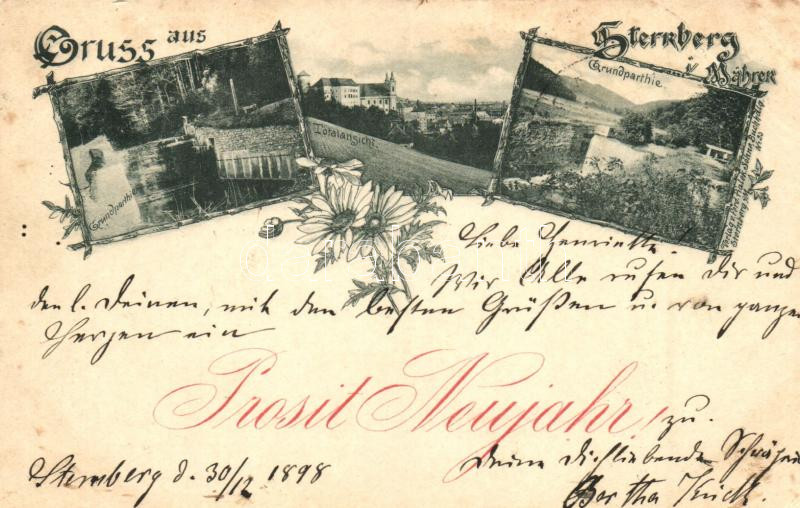 Gruss aus
Sternberg
i/ Mähren
Grundparthie
Totalansicht.
Grundparthie.
Liebe Henriette!
Wir Alle rufen Dir und
den l. Deinen, mit den besten Grüßen u. von ganzem
Herzen ein
Prosit Neujahr! zu.
Sternberg d. 30/12 1898
Deine Dichliebende Schwägerin
Bertha